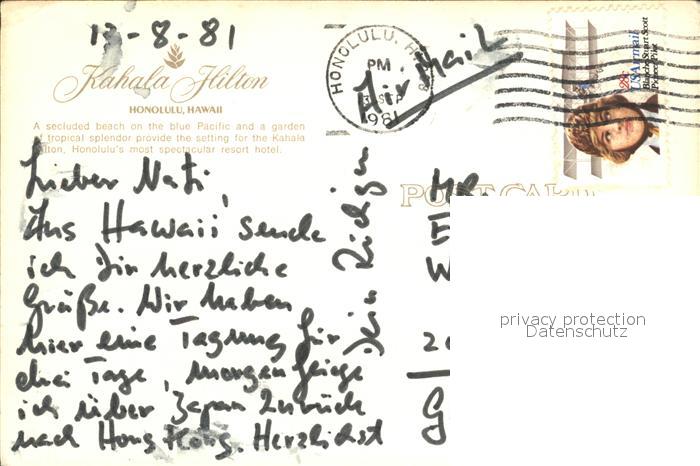 13-8-81
Kahala Hilton
HONOLULU, HAWAII
A secluded beach on the blue Pacific and a garden
of tropical splendor provide the setting for the Kahala
Hilton, Honolulu's most spectacular resort hotel.
HONOLULU, H
PM
SEP
1981
Air Mail
USAirmail
28c
Blanche Stuart Scott
Pioneer Pilot
POST CARD
Lieber Nati,
Aus Hawaii sende
ich Dir herzliche
Grüße. Wir haben
hier eine Tagung für
drei Tage, morgen fliege
ich über Japan zurück
nach Hong Kong. Herzlichst
Dein
privacy protection
Datenschutz